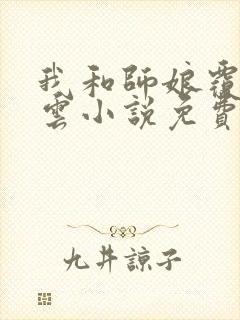 我和師娘覆
雲小說免費
九井諒子